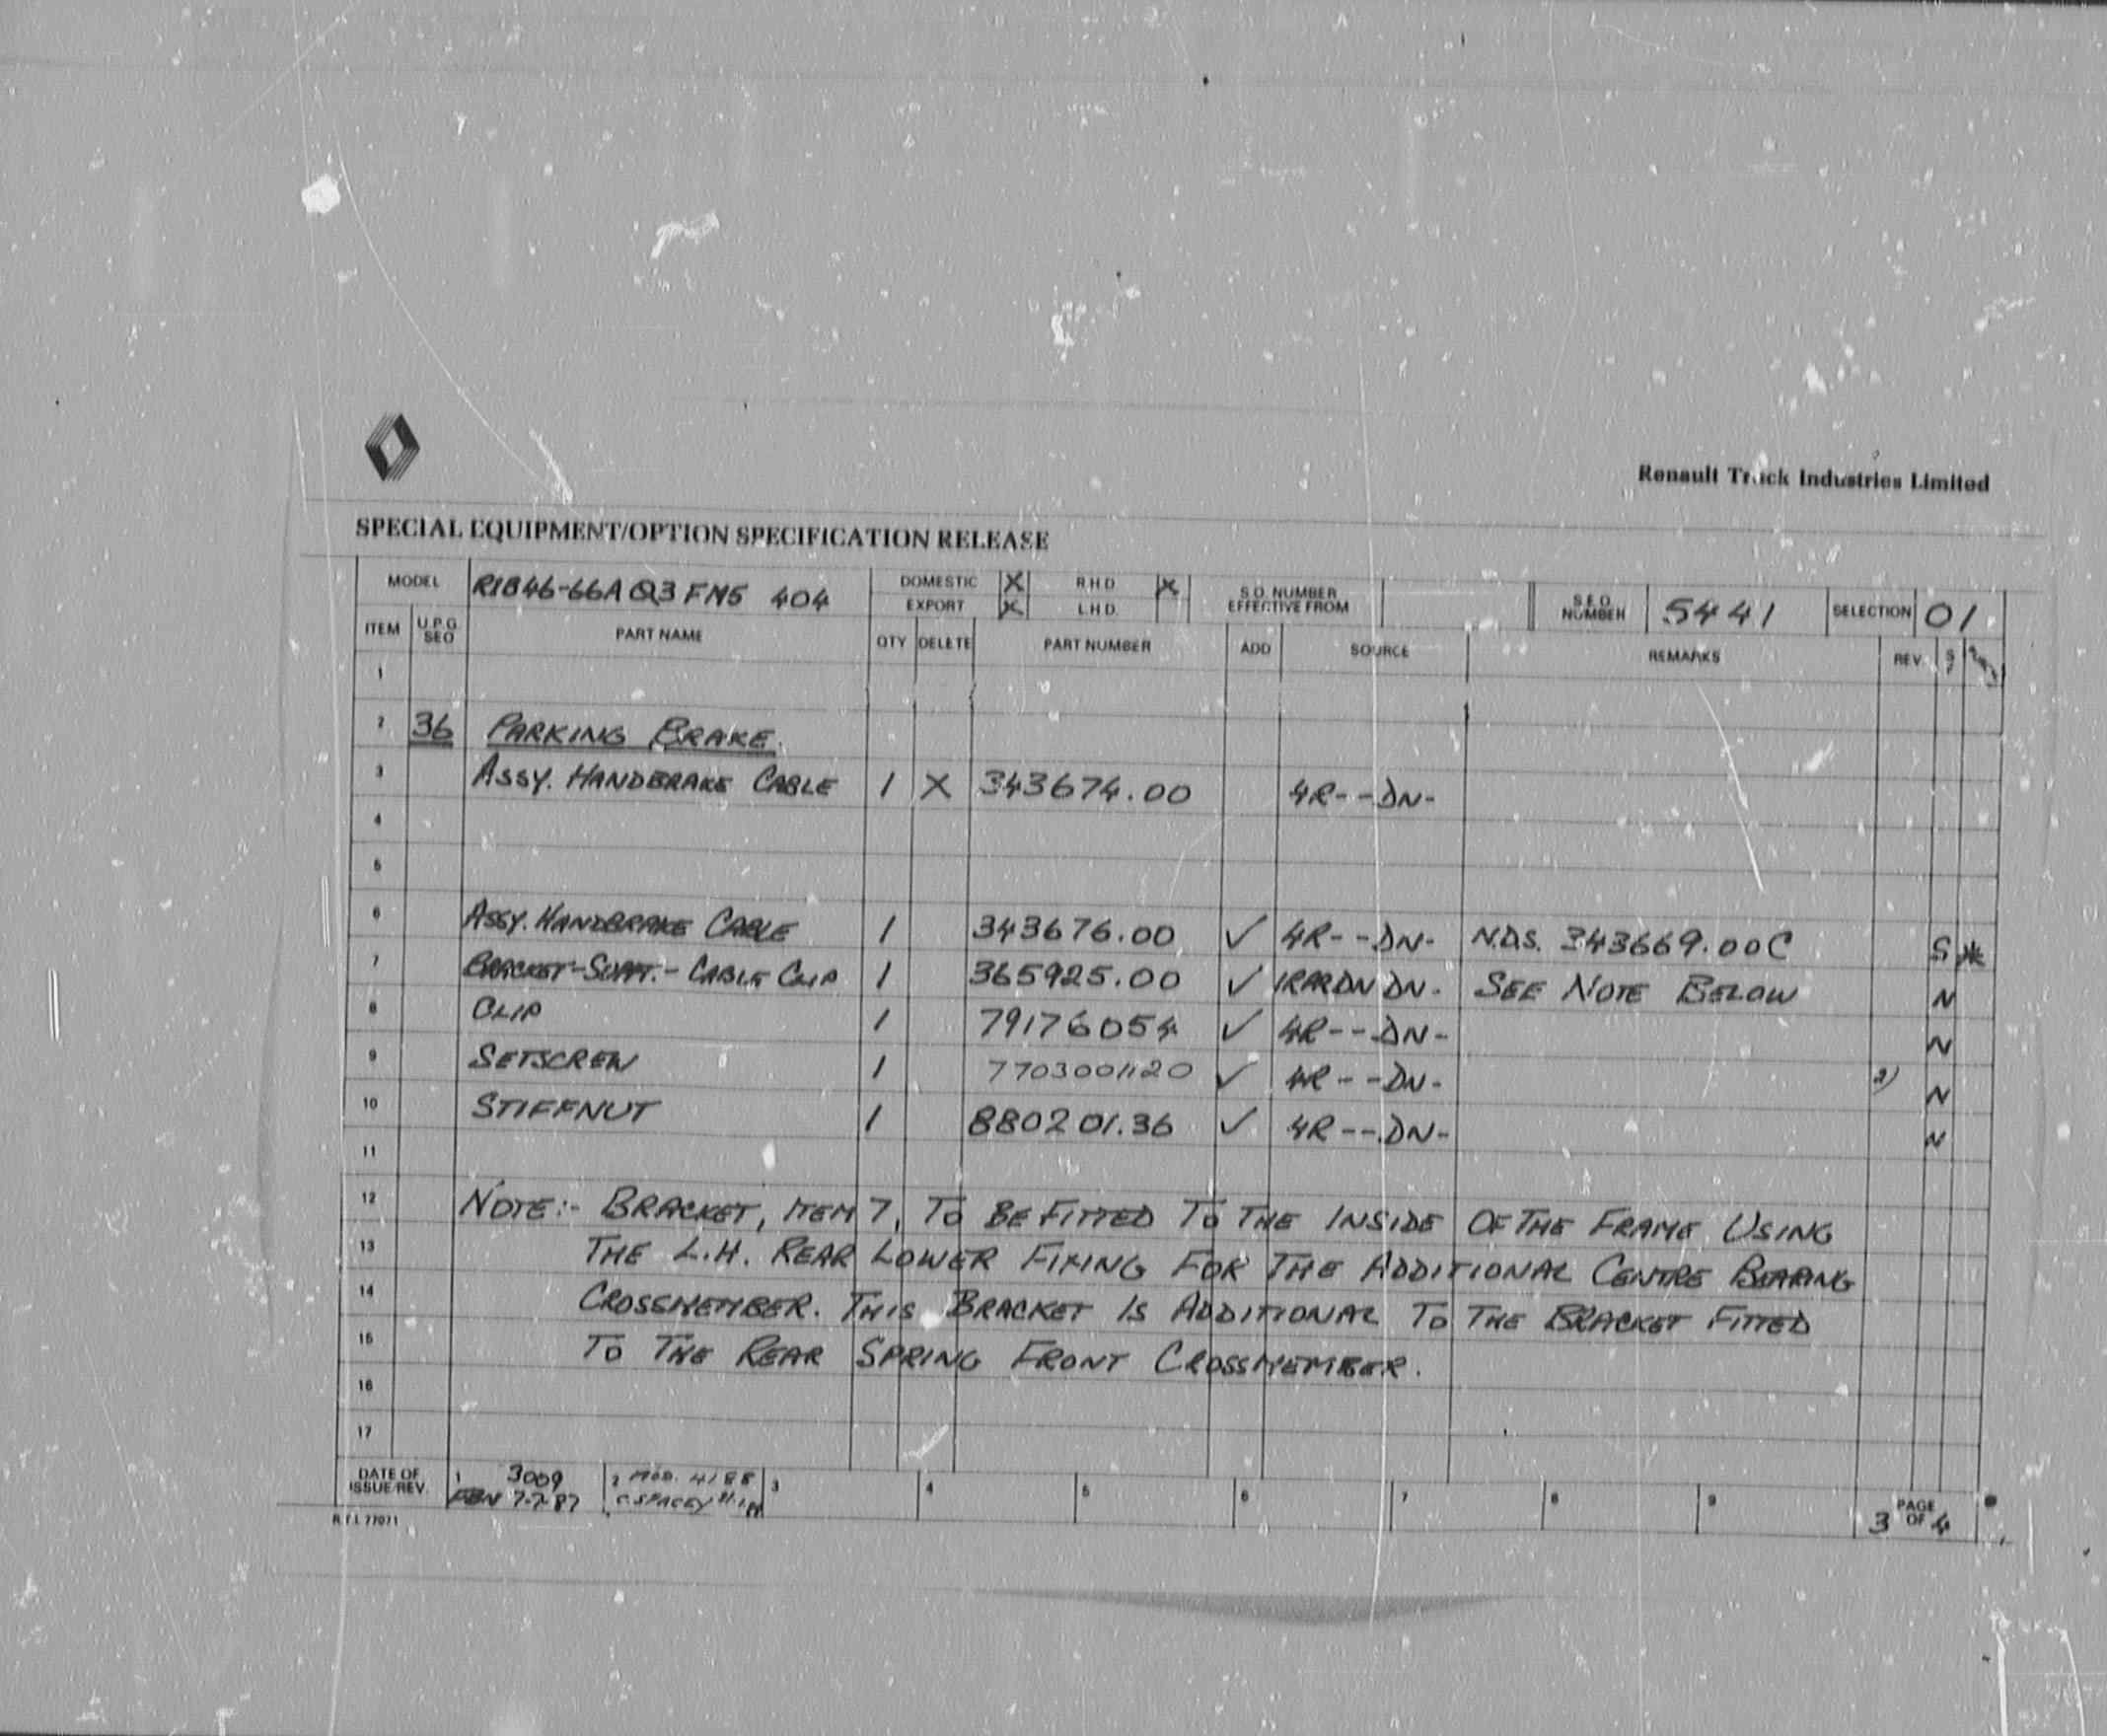 Renault Truck Industries Limited
SPECIAL EQUIPMENT/OPTION SPECIFICATION RELEASE
MODEL R1846-66A Q3 FM5 404 DOMESTIC X R.H.D. X S.O. NUMBER EFFECTIVE FROM S.E.O. NUMBER 5441 SELECTION 01
EXPORT X L.H.D.
ITEM U.P.G. SEQ PART NAME QTY DELETE PART NUMBER ADD SOURCE REMARKS REV.
1
2 36 PARKING BRAKE.
3 ASSY. HANDBRAKE CABLE 1 X 343674.00 4R--DN-
4
5
6 ASSY. HANDBRAKE CABLE 1 343676.00 ✓ 4R--DN- N.D.S. 343669.00C S *
7 BRACKET-SUPPT.-CABLE CLIP 1 365925.00 ✓ 1RARDNDN- SEE NOTE BELOW N
8 CLIP 1 79176054 ✓ 4R---DN- N
9 SETSCREW 1 7703001120 ✓ 4R---DN- 2) N
10 STIFFNUT 1 880201.36 ✓ 4R--DN- N
11
12 NOTE:- BRACKET, ITEM 7, TO BE FITTED TO THE INSIDE OF THE FRAME USING
13 THE L.H. REAR LOWER FIXING FOR THE ADDITIONAL CENTRE BEARING
14 CROSSMEMBER. THIS BRACKET IS ADDITIONAL TO THE BRACKET FITTED
15 TO THE REAR SPRING FRONT CROSSMEMBER.
16
17
DATE OF ISSUE/REV. 1 3009 7-7-87 2 MOD. 4188 C. SPACEY 3 4 5 6 7 8 9 PAGE 3 OF 4
R.T.I. 77071